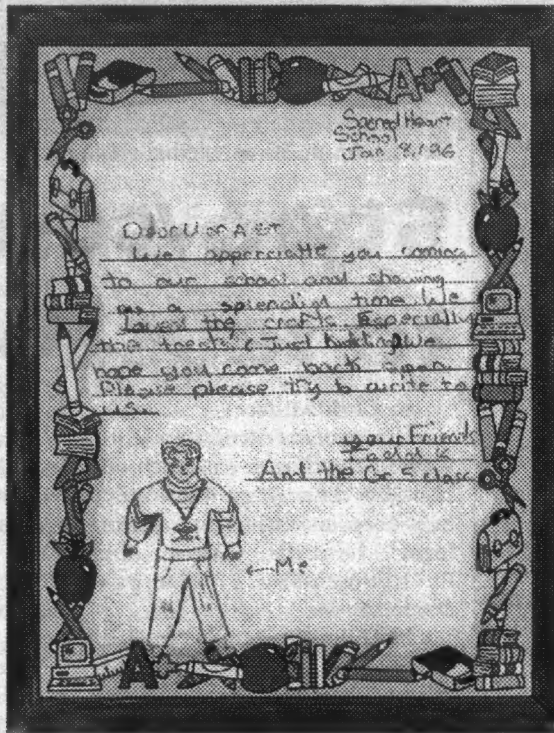 A+
Sacred Heart
School
Jan 8, 1996
Dear U of A
We appreciatte you coming
to our school and showing
us a splendid time. We
Loved the crafts. Especially
the treats. (Just kidding) We
hope you come back again.
Please please try to write to
us.
your Friend
And the Gr 5 class
Me
A+